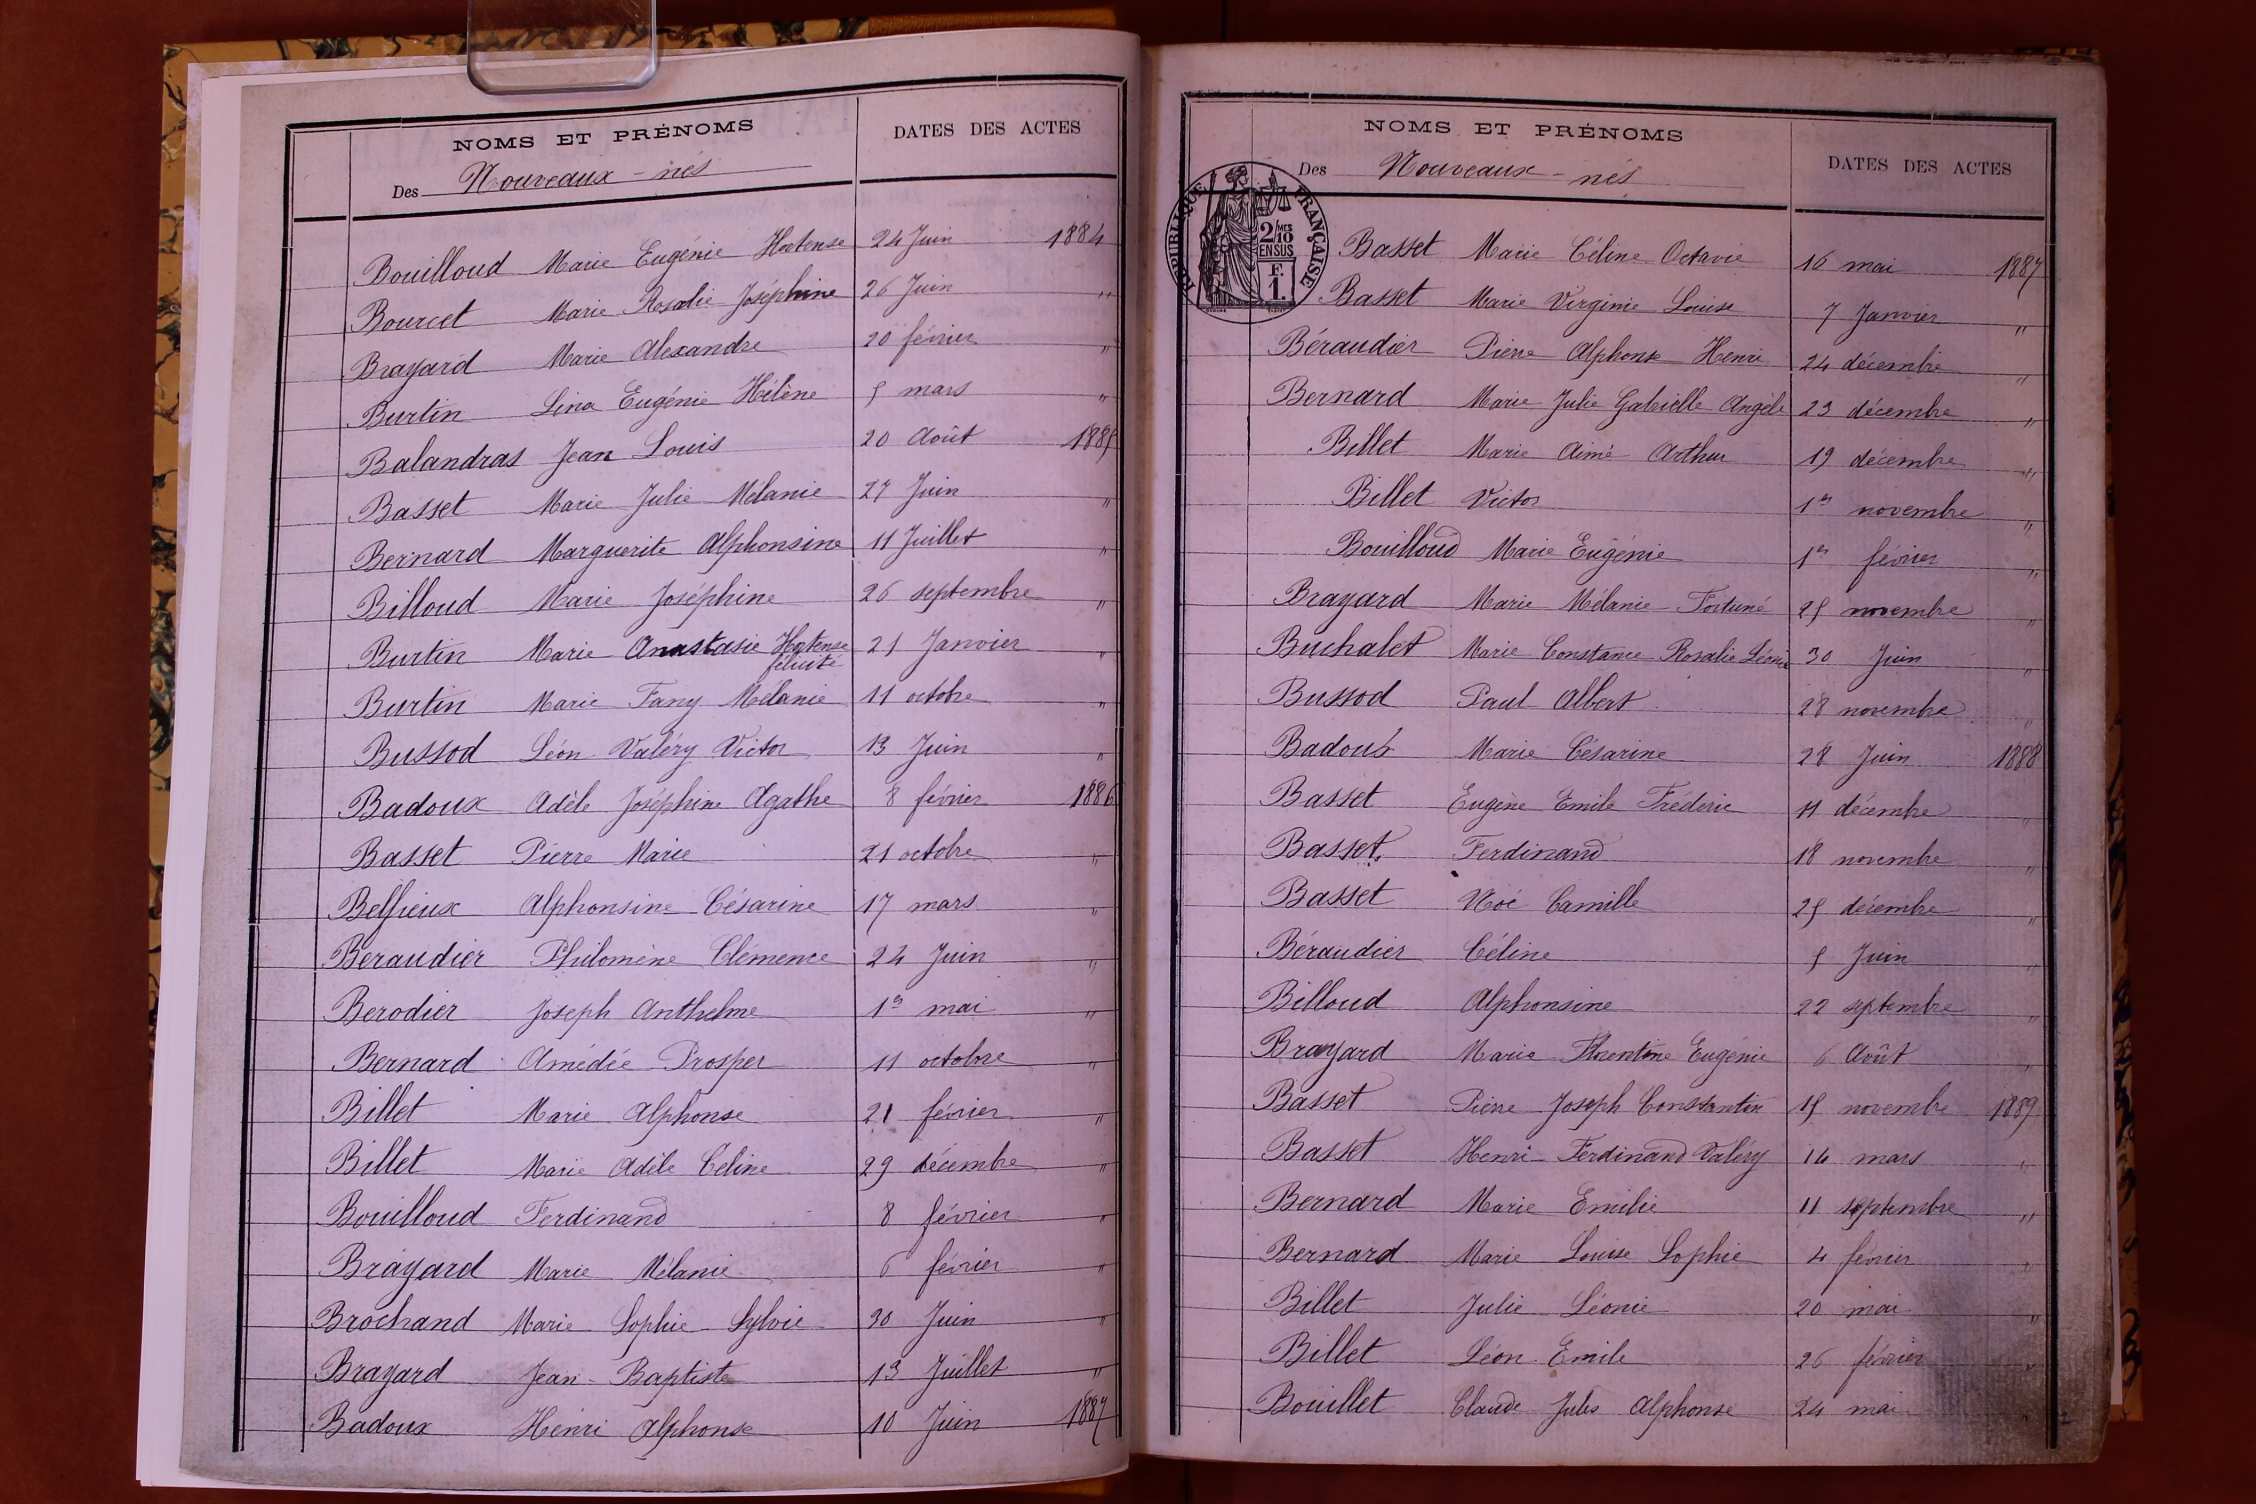 NOMS ET PRÉNOMS DATES DES ACTES
Des Nouveaux-nés
Bouilloud Marie Eugénie Hortense 24 Juin 1884
Bourcet Marie Rosalie Joséphine 26 Juin "
Brayard Marie Alexandre 20 février "
Burtin Lina Eugénie Hélène 5 mars "
Balandras Jean Louis 20 Août 1885
Basset Marie Julie Mélanie 27 Juin "
Bernard Marguerite Alphonsine 11 Juillet "
Billoud Marie Joséphine 26 septembre "
Burtin Marie Anastasie Hortense félicité 21 Janvier "
Burtin Marie Fany Mélanie 11 octobre "
Bussod Léon Valéry Victor 13 Juin "
Badoux Adèle Joséphine Agathe 8 février 1886
Basset Pierre Marie 21 octobre "
Belfieux Alphonsine Césarine 17 mars "
Beraudier Philomène Clémence 24 Juin "
Berodier Joseph Anthelme 1er mai "
Bernard Amédée Prosper 11 octobre "
Billet Marie Alphonse 21 février "
Billet Marie Adèle Celine 29 décembre "
Bouilloud Ferdinand 8 février "
Brayard Marie Mélanie 6 février "
Brochand Marie Sophie Sylvie 30 Juin "
Brayard Jean-Baptiste 13 Juillet "
Badoux Henri Alphonse 10 Juin 1887
NOMS ET PRÉNOMS DATES DES ACTES
Des Nouveaux-nés
RÉPUBLIQUE FRANÇAISE
2/10 MES
EN SUS
F.
1.
Basset Marie Céline Octavie 16 mai 1887
Basset Marie Virginie Louise 7 Janvier "
Béraudier Pierre Alphonse Henri 24 décembre "
Bernard Marie Julie Gabrielle Angèle 23 décembre "
Billet Marie Aimé Arthur 19 décembre "
Billet Victor 1er novembre "
Bouilloud Marie Eugénie 1er février "
Brayard Marie Mélanie Fortuné 25 novembre "
Buchalet Marie Constance Rosalie Léonie 30 Juin "
Bussod Paul Albert 28 novembre "
Badoux Marie Césarine 28 Juin 1888
Basset Eugène Emile Fréderic 11 décembre "
Basset Ferdinand 18 novembre "
Basset Noé Camille 25 décembre "
Béraudier Céline 5 Juin "
Billoud Alphonsine 22 septembre "
Brayard Marie Florentine Eugénie 6 Août "
Basset Pierre Joseph Constantin 15 novembre 1889
Basset Henri Ferdinand Valéry 14 mars "
Bernard Marie Emilie 11 septembre "
Bernard Marie Louise Sophie 4 février "
Billet Julie Léonie 20 mai "
Billet Léon Emile 26 février "
Bouillet Claude Jules Alphonse 24 mai "